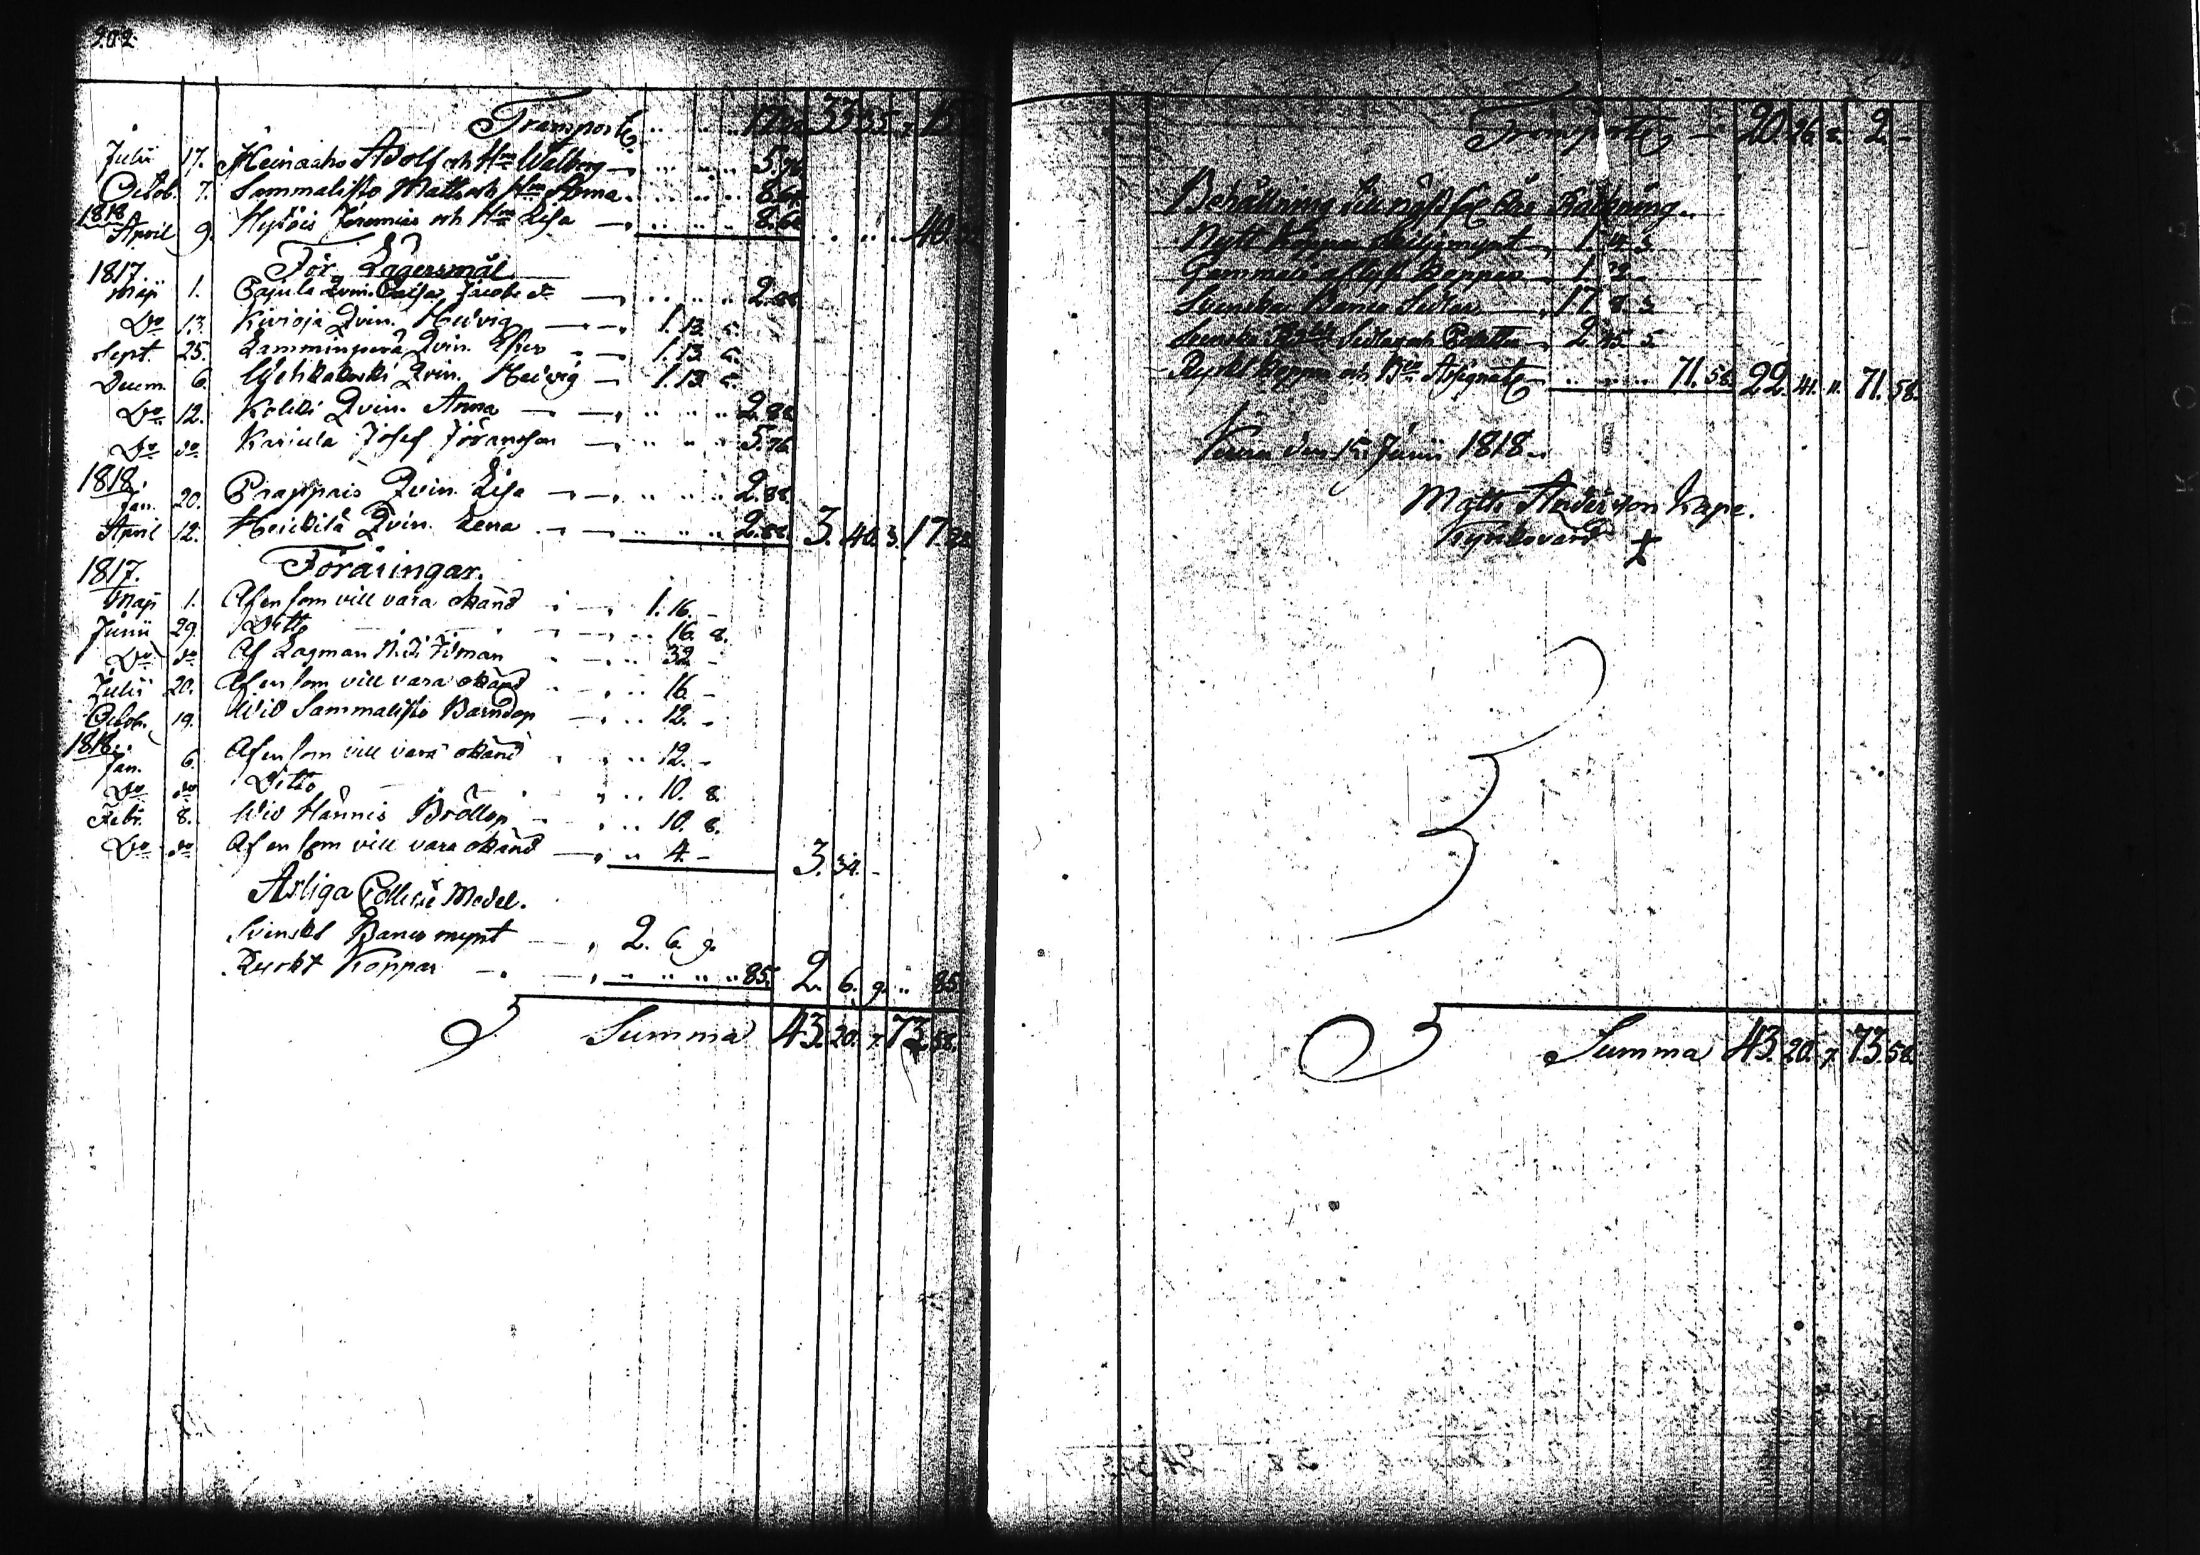 202.
Transport .. .. .. 17. 33 35 7. 15
Julii 17. Heinaaho Adolf och H:u Walborg — .. .. .. 5.76.
Octob. 7. Sammalisto Matts och H:u Anna .. .. .. 8.64
1818
April 9. Hylöis Jeremias och H:u Lisa — .. .. .. 8.60 .. .. .. 40
För Lägersmål
1817.
Maji 1. Pajula Qvin. Caisa Jacobs d:r — .. .. .. 2.88.
D:o 13. Kivioja Qvin. Hedvig — 1. 13. 5.
Sept. 25. Lamminperä Qvin. — 1. 13. 5.
Decem. 6. Qvin. Hedvig — 1. 13. 5.
D:o 12. Kolki Qvin. Anna — .. .. .. 2.88.
D:o d:o Kariula Josef Jöransson — .. .. .. 5.76
1818.
Jan. 20. Prappais Qvin. Lisa — .. .. .. 2.88.
April 12. Heickilä Qvin. Lena — .. .. .. 2.88. 3. 40. 3. 17. 28
Föräringar.
1817.
Maji 1. Af en som vill vara okänd — 1. 16. -
Junii 29. Ditto — .. 16. 8.
D:o d:o Af Lagman Idman — .. 32 -
Julii 20. Af en som vill vara okänd — .. 16 -
Octob. 19. Wid Sammalisto Barndop — .. 12. -
1818.
Jan. 6. Af en som vill vara okänd .. 12. -
D:o d:o Ditto .. 10. 8.
Febr. 8. Wid Hannis Bröllop .. 10. 8.
D:o d:o Af en som vill vara okänd — .. 4. - 3. 34. -
Årliga Collect Medel.
Svenskt Banco mynt — 2. 6. 9.
Ryskt Koppar — .. .. .. .. 85. 2. 6. 9. .. 85
Summa 43. 20. 7. 73. 58.
Transport — 20. 26. 2. -
Behållning til näst följande Räkning.
Nytt Koppar Skiljemynt 1. 3
Gammalt aflyst Koppar — 1.
Svenska Banco Sedlar — 17. 8. 3
Svenska Sedlar och Poletter 2. 45. 5
Ryskt Koppar och B:co Assignater — .. .. .. 71. 58. 22. 41. 11. 71. 58.
den 15. Junii 1818.
Matts Andersson Kape.
Kyrkovärd
Summa 43. 20. 7. 73. 58.
KODAK